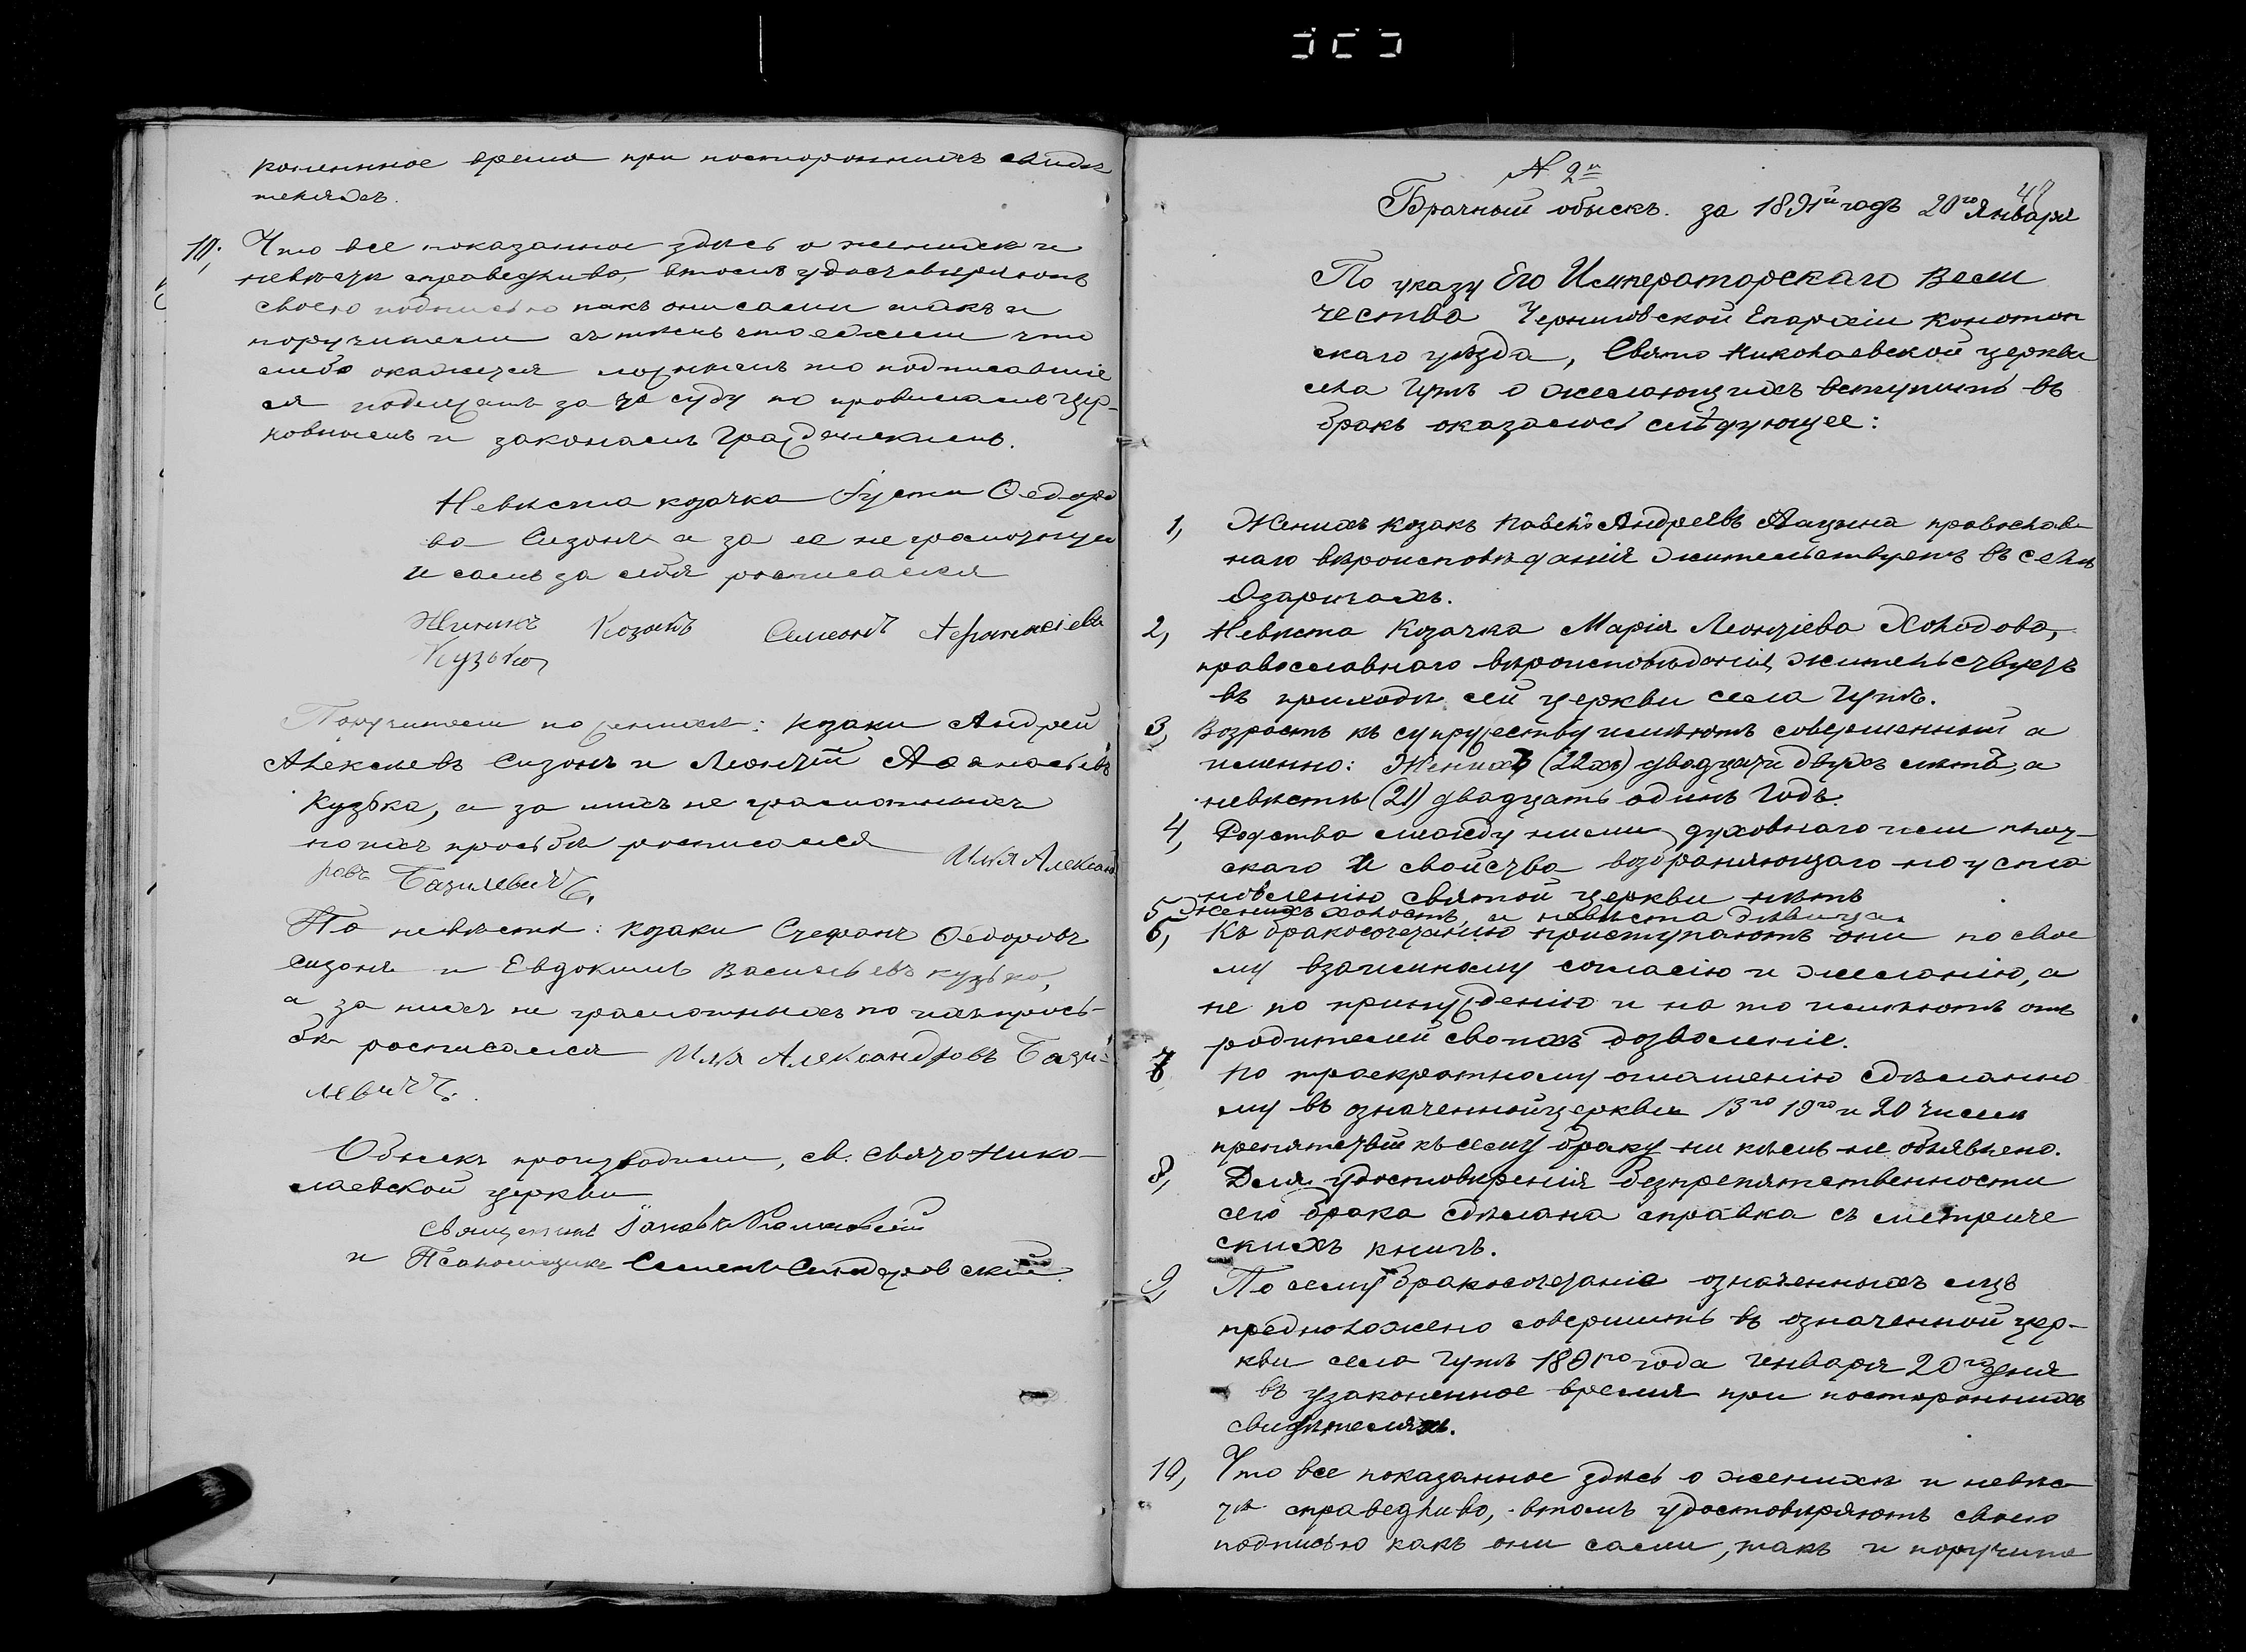 коненное время при постороннихъ свидѣ
теляхъ.
10, Что все показанное здѣсь о женихѣ и
невѣсти справедливо, втомъ удостовиряютъ
своею подписью какъ они сами такъ и
поручители съ тѣмъ что ежели что
либо окажется ложнымъ то подписавшіе
ся подлежатъ за то суду по правиламъ цер-
ковнымъ и законамъ гражданскимъ.
Невѣста козачка Ѳедоро
ва Сизонъ а за ее не грамотную
и самъ за себя росписался
Жинихъ Козакъ Симеонъ
Кузько
Поручители по женихѣ: козаки Андрей
Алексѣевъ Сизонъ и Леонтій Аѳанасьевъ
Кузька, а за нихъ не грамотныхъ
по ихъ просьби росписался Илія Александ
ровъ Базилевичъ.
По невѣсти: козаки Стефанъ Ѳедоровъ
Сизонъ и Евдокимъ Васильевъ Кузько,
а за нихъ не грамотныхъ по ихъ прось-
бѣ росписался Илія Александровъ Бази-
левичъ.
Обыскъ производили, св. Свято Нико-
лаевской церкви
священникъ Іаковъ
и Псаломщикъ Семенъ
N 2й
Брачный обыскъ. за 1891й годъ 20го Января
По указу Его Императорскаго Вели
чества Черниговской Епархіи Конотоп
скаго уѣзда, Свято Николаевской церкви
села Гутъ о желающихъ вступить въ
бракъ оказалось слѣдующее:
1, Женихъ козакъ Павелъ Андреевъ православ
наго вѣроисповѣданія жительствуетъ въ селѣ
Озаричахъ.
2, Невѣста Козачка Марія Леонтіева Холодова,
православнаго вѣроисповѣданія, жительствуетъ
въ приходѣ сей церкви села Гутъ.
3, Возрастъ къ супружеству имѣютъ совершенный а
именно: Женихъ (22хъ) двадцати двухъ лѣтъ, а
невѣста (21) двадцать одинъ годъ.
4, Родства между ними духовнаго или плот-
скаго и свойства возбраняющаго по уста
новленію святой церкви нѣтъ
5 Женихъ холостъ, и невѣста дѣвица
6, Къ бракосочетанію приступаютъ они по свое
му взаимному согласію и желанію, а
не по принужденію и на то имѣютъ отъ
родителей своихъ дозволеніе.
7 по троекратному оглашенію сдѣланно
му въ означенной церкви 13го 19го и 20 числа
препятствій къ сему браку ни кѣмъ не объявлено.
8, Для удостовѣренія безпрепятственности
сего брака сдѣлана справка съ метриче
скихъ книгъ.
9, По сему бракосочетаніе означенныхъ лицъ
предположено совершить въ означенной цер-
кви села Гутъ 1891го года Генваря 20го дня
въ узаконенное время при постороннихъ
свидѣтеляхъ.
10, Что все показанное здѣсь о женихѣ и невѣс
тѣ справедливо, втомъ удостовѣряютъ своею
подписью какъ они сами, такъ и поручите